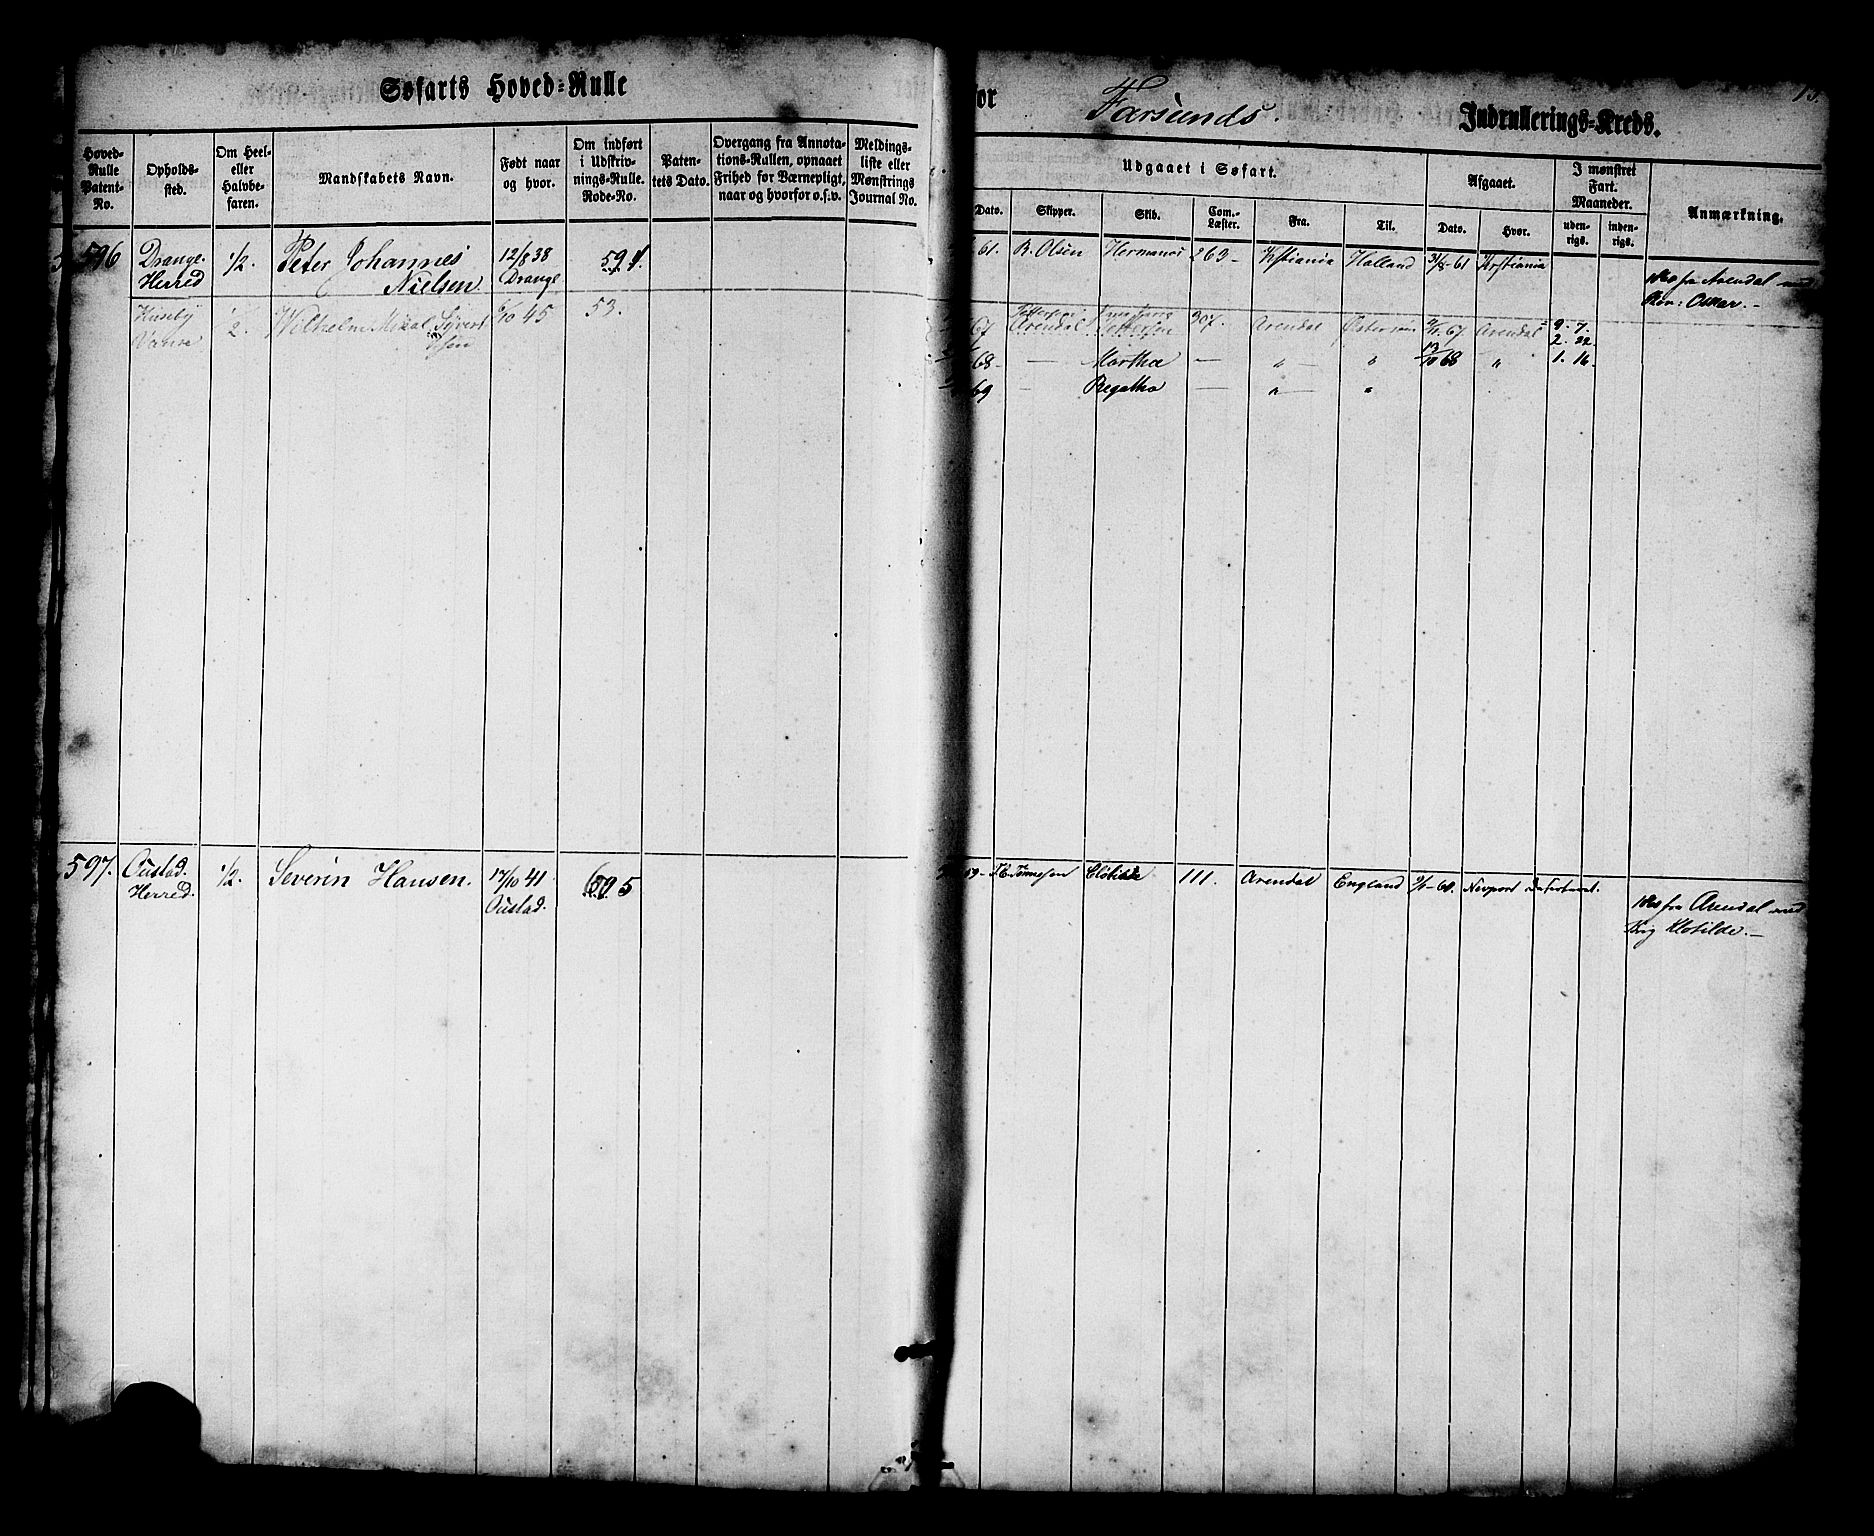 Søfarts Hoved-Rulle
for Farsunds Indrullerings-Kreds.
Hoved-Rulle Patent-No.
Opholds-sted.
Om Heel- eller Halvbefaren.
Mandskabets Navn.
Født naar og hvor.
Om indført i Udskrivnings-Rulle. Rode-No.
Patentets Dato.
Overgang fra Annotations-Rullen, opnaaet Frihed for Værnepligt, naar og hvorfor o.s.v.
Meldings-liste eller Mønstrings Journal No.
Udgaaet i Søfart.
Dato.
Skipper.
Skib.
Com.-Læster.
Fra.
Til.
Afgaaet.
Dato.
Hvor.
I mønstret Fart. Maaneder.
uden-rigs.
inden-rigs.
Anmærkning.
596 Drange Herred 1/2. Peter Johannes Nielsen 12/8 38 Drange 594.
61. B. Olsen Hermanos 263 Kristiania Holland 31/8-61 Kristiania
fra Arendal med
Oskar.
Huseby Vanse 1/2 Wilhelm Mikal Sivertsen 45 53.
67 Arendal 307. Arendal 67 Arendal 9. 7.
2. 22.
68 — Martha — " " 13/10 68 " 1. 16.
69 — Regatha — " "
597. Oustad. Herred. 1/2. Severin Hansen. 17/10 41 Oustad. 595
59- Tønnesen Clotilde 111. Arendal England Newport
fra Arendal med
Brig Klotilde.